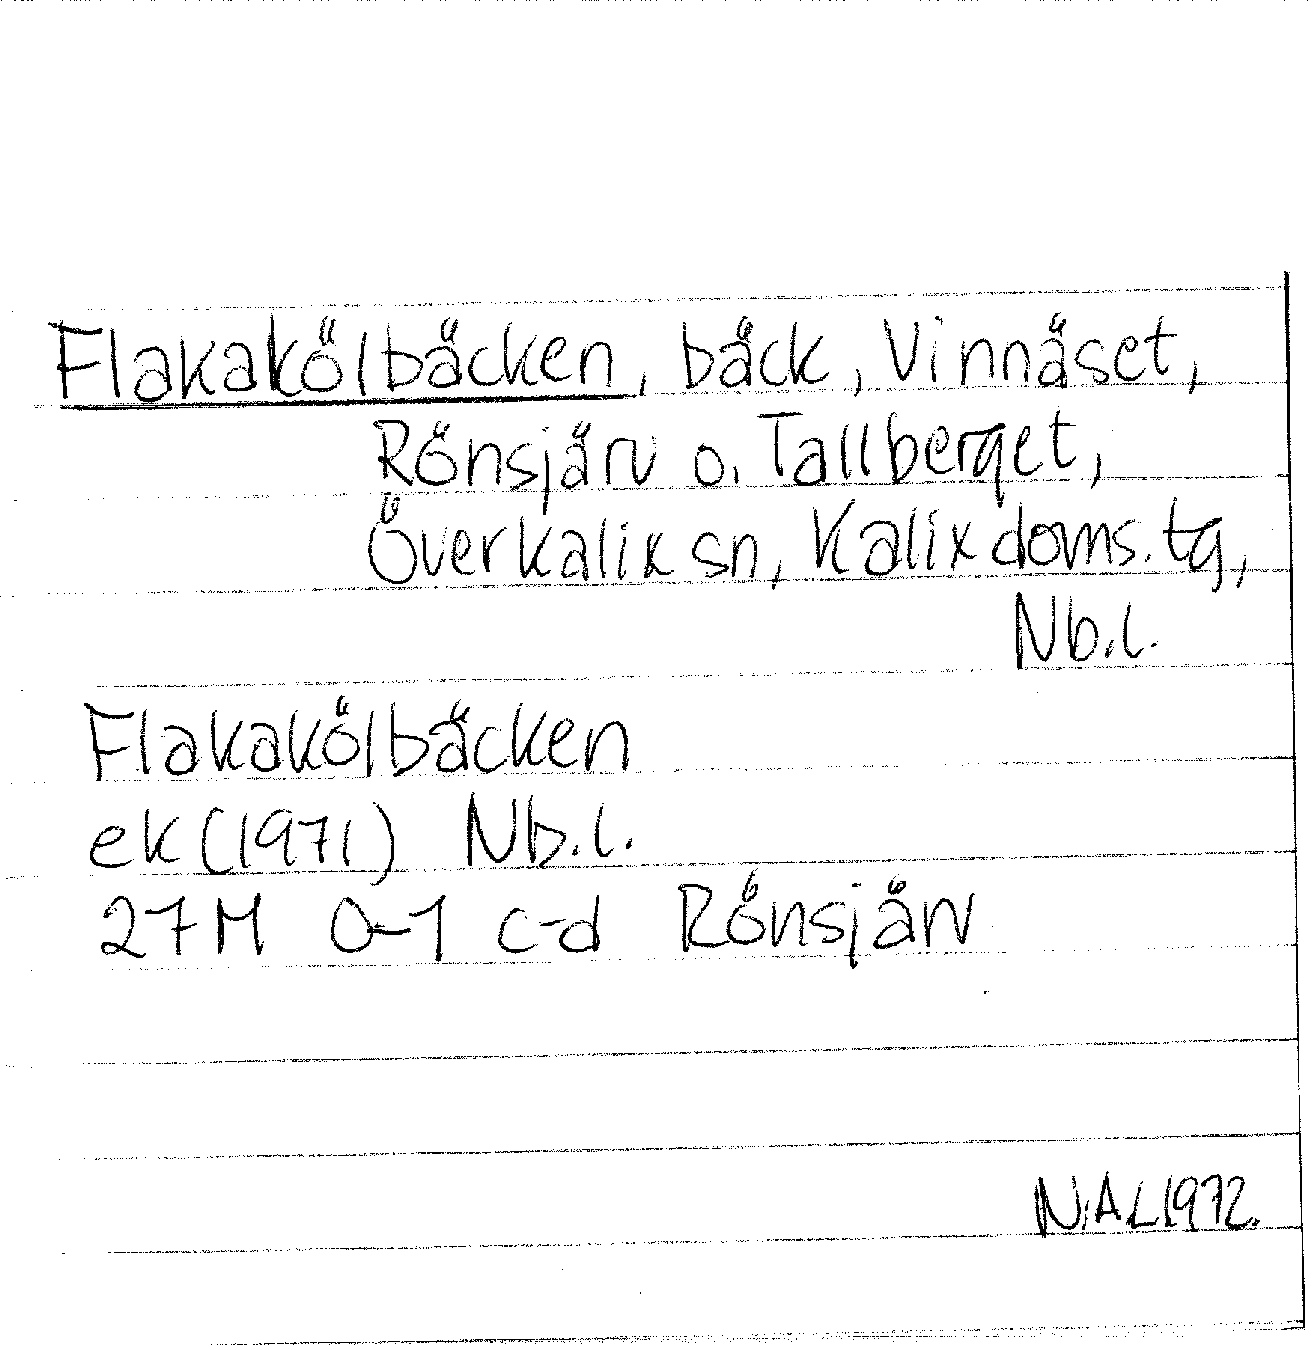 Flakakölbäcken, bäck, Vinnäset,
Rönsjärv o. Tallberget,
Överkalix sn, Kalix doms.tg,
Nb.l.
Flakakölbäcken
ek (1971) Nb.l.
27M 0-1 c-d Rönsjärv
N.A.L 1972.